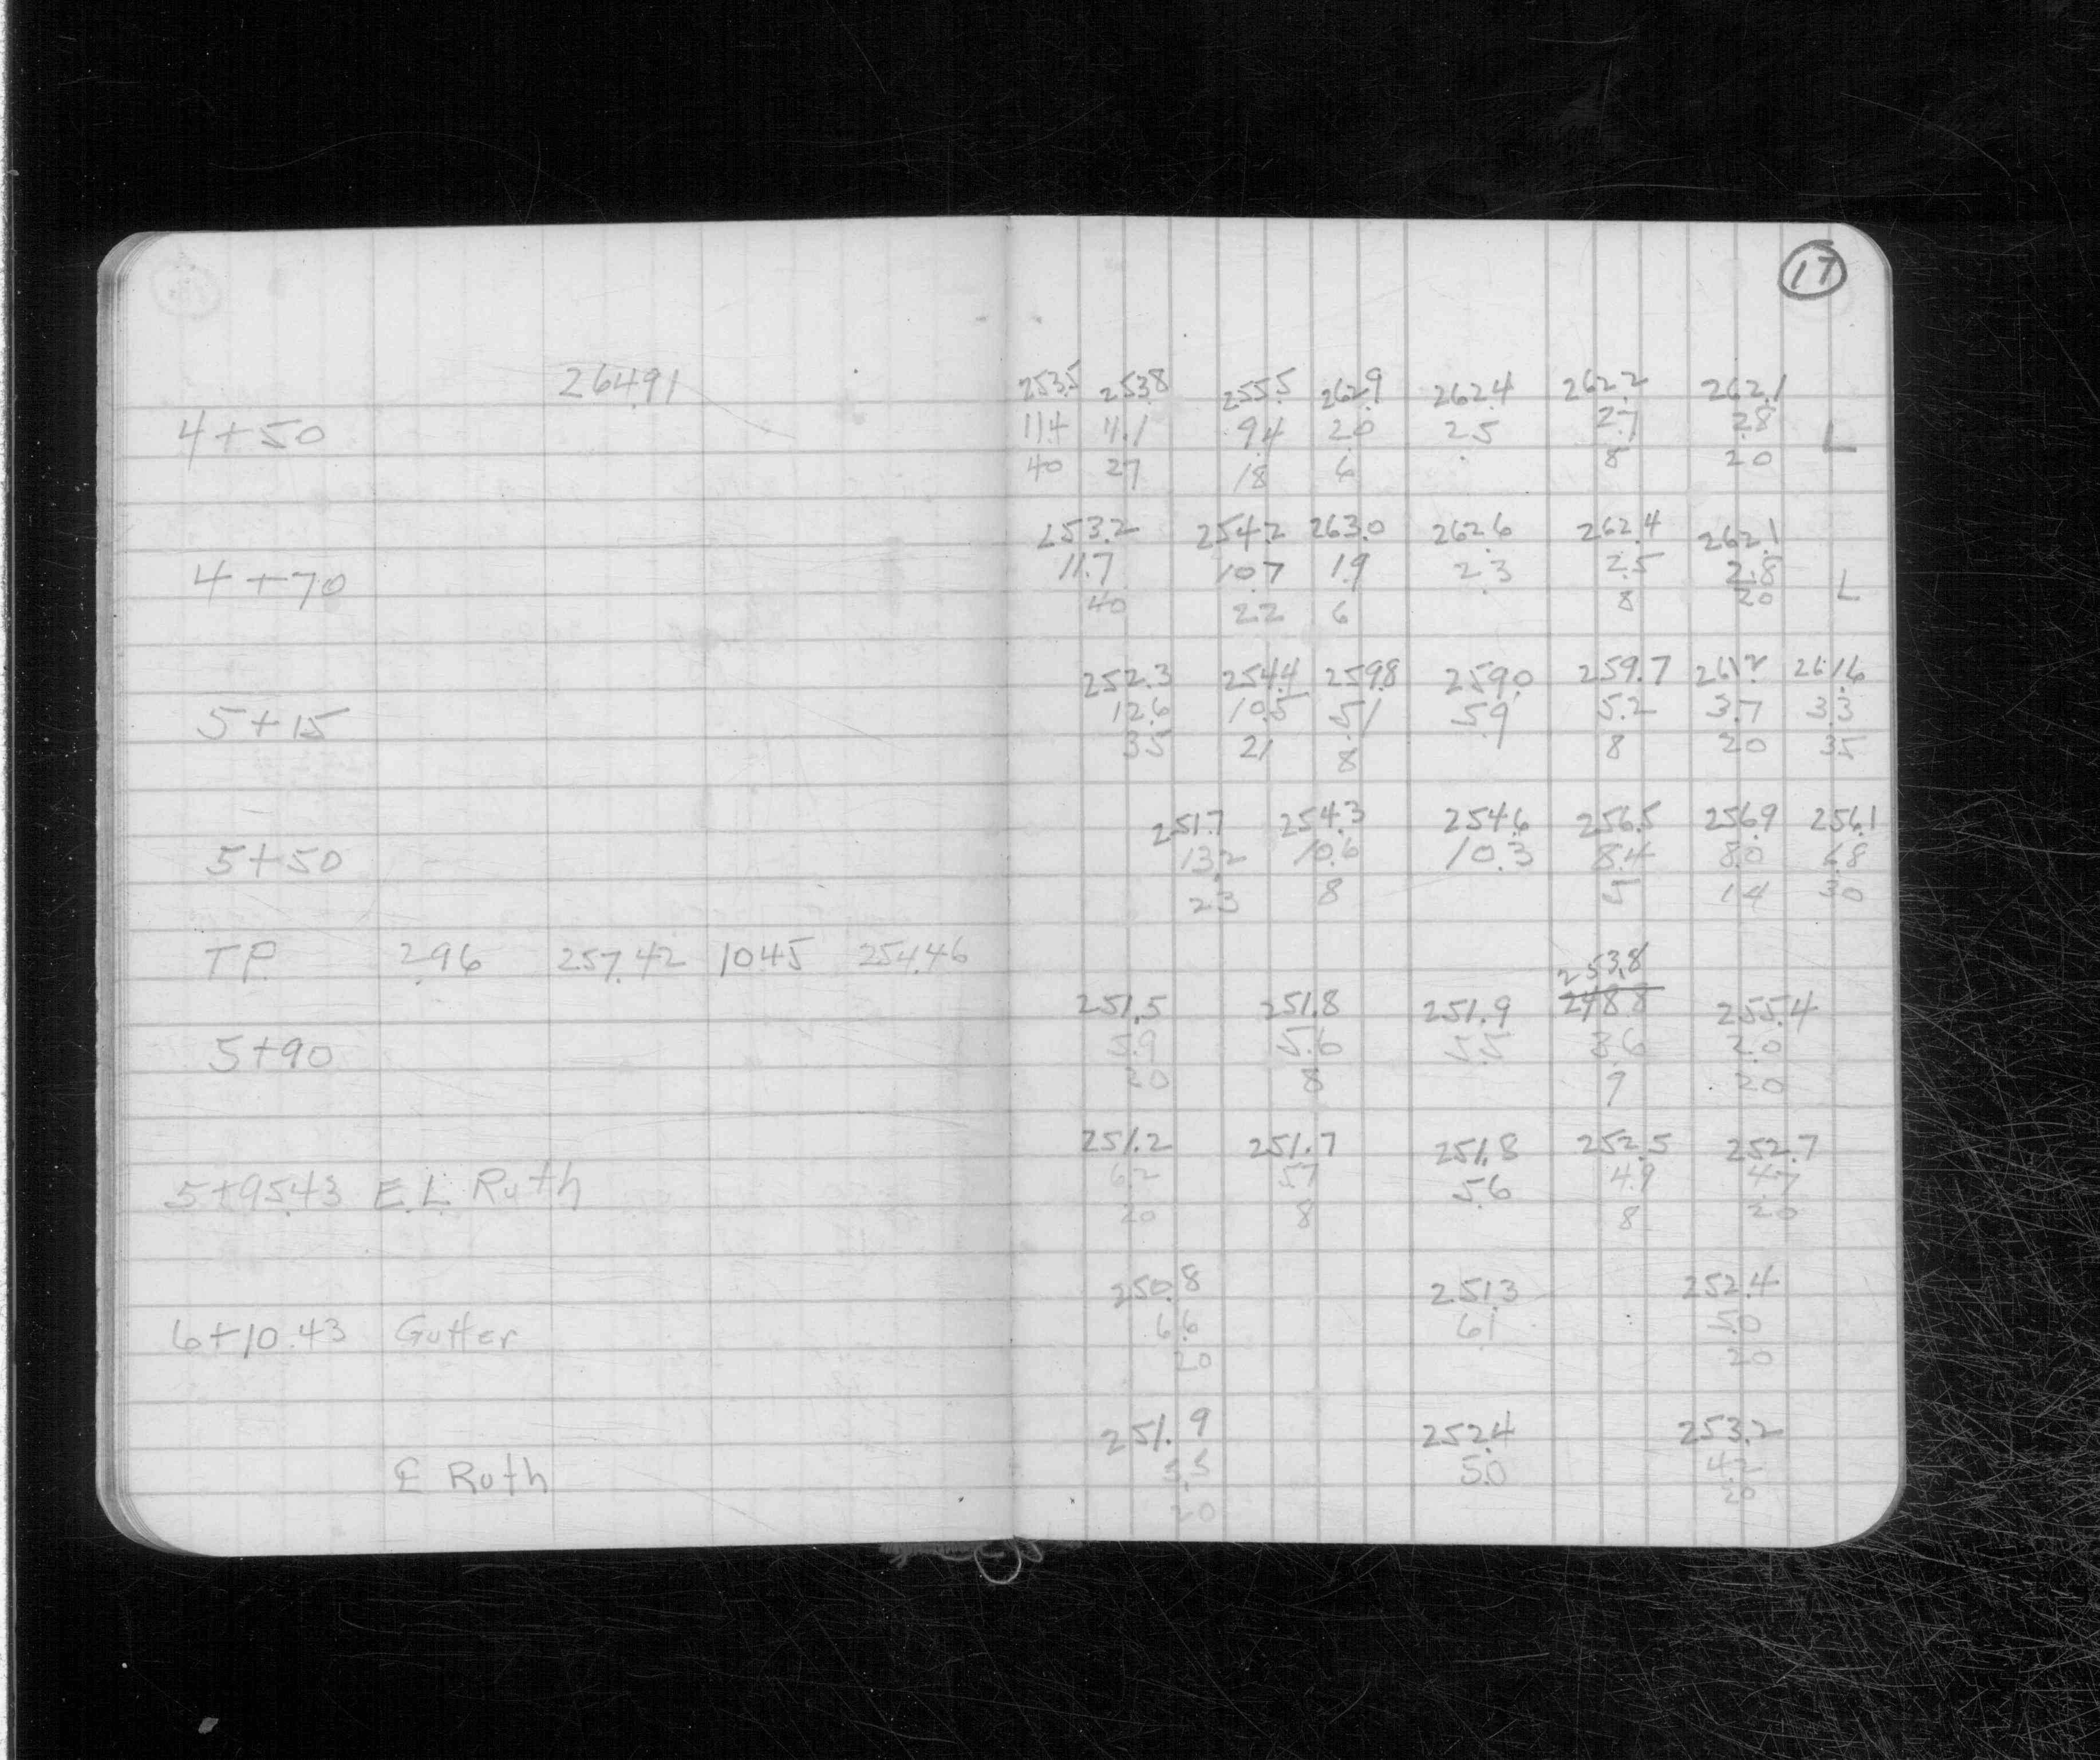 17
264.91 253.5 253.8 255.5 262.9 262.4 262.2 262.1
4+50 11.4 11.1 9.4 2.0 2.5 2.7 2.8 L
40 27 18 6 8 20
253.2 254.2 263.0 262.6 262.4 262.1
4+70 11.7 10.7 1.9 2.3 2.5 2.8 L
40 22 6 8 20
252.3 254.4 259.8 259.0 259.7 261.2 261.6
5+15 12.6 10.5 5.1 5.9 5.2 3.7 3.3
35 21 8 8 20 35
251.7 254.3 254.6 256.5 256.9 256.1
5+50 13.2 10.6 10.3 8.4 8.0 8
23 8 5 14 30
T.P. 2.96 257.42 10.45 254.46 253.8
251.5 251.8 251.9 248.8 255.4
5+90 5.9 5.6 5.5 3.6 2.0
20 8 9 20
251.2 251.7 251.8 252.5 252.7
5+95.43 E.L. Ruth 6.2 5.7 5.6 4.9 4.7
20 8 8 20
250.8 251.3 252.4
6+10.43 Gutter 6.6 6.1 5.0
20 20
251.9 252.4 253.2
℄ Ruth 5.5 5.0 4.2
20 20